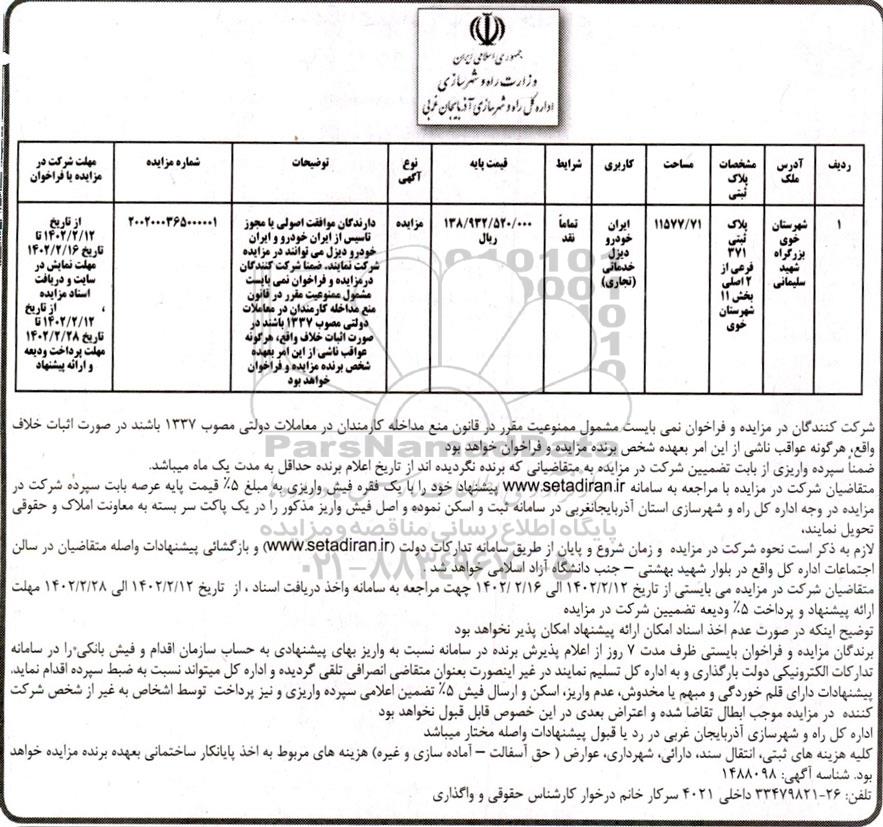 جمهوری اسلامی ایران
وزارت راه و شهرسازی
اداره کل راه و شهرسازی آذربایجان غربی
ردیف
آدرس
ملک
مشخصات
پلاک
ثبتی
مساحت
کاربری
شرایط
قیمت پایه
نوع
آگهی
توضیحات
شماره مزایده
مهلت شرکت در
مزایده یا فراخوان
۱
شهرستان
خوی
بزرگراه
شهید
سلیمانی
پلاک
ثبتی
۳۷۱
فرعی از
۲ اصلی
بخش ۱۱
شهرستان
خوی
۱۱۵۷۷/۷۱
ایران
خودرو
دیزل
خدماتی
(تجاری)
تماماً
نقد
۱۳۸/۹۳۲/۵۲۰/۰۰۰
ریال
مزایده
دارندگان موافقت اصولی یا مجوز
تاسیس از ایران خودرو و ایران
خودرو دیزل می توانند در مزایده
شرکت نمایند. ضمنا شرکت کنندگان
درمزایده و فراخوان نمی بایست
مشمول ممنوعیت مقرر در قانون
منع مداخله کارمندان در معاملات
دولتی مصوب ۱۳۳۷ باشند در
صورت اثبات خلاف واقع، هرگونه
عواقب ناشی از این امر بعهده
شخص برنده مزایده و فراخوان
خواهد بود
۲۰۰۲۰۰۰۳۶۵۰۰۰۰۰۱
از تاریخ
۱۴۰۲/۲/۱۲ تا
تاریخ ۱۴۰۲/۲/۱۶
مهلت نمایش در
سایت و دریافت
اسناد مزایده
، از تاریخ
۱۴۰۲/۲/۱۲ تا
تاریخ ۱۴۰۲/۲/۲۸
مهلت پرداخت ودیعه
و ارائه پیشنهاد
شرکت کنندگان در مزایده و فراخوان نمی بایست مشمول ممنوعیت مقرر در قانون منع مداخله کارمندان در معاملات دولتی مصوب ۱۳۳۷ باشند در صورت اثبات خلاف
واقع، هرگونه عواقب ناشی از این امر بعهده شخص برنده مزایده و فراخوان خواهد بود
ضمناً سپرده واریزی از بابت تضمیین شرکت در مزایده به متقاضیانی که برنده نگردیده اند از تاریخ اعلام برنده حداقل به مدت یک ماه میباشد.
متقاضیان شرکت در مزایده با مراجعه به سامانه www.setadiran.ir پیشنهاد خود را با یک فقره فیش واریزی به مبلغ ۵٪ قیمت پایه عرصه بابت سپرده شرکت در
مزایده در وجه اداره کل راه و شهرسازی استان آذربایجانغربی در سامانه ثبت و اسکن نموده و اصل فیش واریز مذکور را در یک پاکت سر بسته به معاونت املاک و حقوقی
تحویل نمایند،
لازم به ذکر است نحوه شرکت در مزایده و زمان شروع و پایان از طریق سامانه تدارکات دولت (www.setadiran.ir) و بازگشائی پیشنهادات واصله متقاضیان در سالن
اجتماعات اداره کل واقع در بلوار شهید بهشتی – جنب دانشگاه آزاد اسلامی خواهد شد .
متقاضیان شرکت در مزایده می بایستی از تاریخ ۱۴۰۲/۲/۱۲ الی ۱۴۰۲/ ۲/۱۶ جهت مراجعه به سامانه واخذ دریافت اسناد ، از تاریخ ۱۴۰۲/۲/۱۲ الی ۱۴۰۲/۲/۲۸ مهلت
ارائه پیشنهاد و پرداخت ۵٪ ودیعه تضمیین شرکت در مزایده
توضیح اینکه در صورت عدم اخذ اسناد امکان ارائه پیشنهاد امکان پذیر نخواهد بود
برندگان مزایده و فراخوان بایستی ظرف مدت ۷ روز از اعلام پذیرش برنده در سامانه نسبت به واریز بهای پیشنهادی به حساب سازمان اقدام و فیش بانکی را در سامانه
تدارکات الکترونیکی دولت بارگذاری و به اداره کل تسلیم نمایند در غیر اینصورت بعنوان متقاضی انصرافی تلقی گردیده و اداره کل میتواند نسبت به ضبط سپرده اقدام نماید.
پیشنهادات دارای قلم خوردگی و مبهم یا مخدوش، عدم واریز، اسکن و ارسال فیش ۵٪ تضمین اعلامی سپرده واریزی و نیز پرداخت توسط اشخاص به غیر از شخص شرکت
کننده در مزایده موجب ابطال تقاضا شده و اعتراض بعدی در این خصوص قابل قبول نخواهد بود
اداره کل راه و شهرسازی آذربایجان غربی در رد یا قبول پیشنهادات واصله مختار میباشد
کلیه هزینه های ثبتی، انتقال سند، دارائی، شهرداری، عوارض ( حق آسفالت – آماده سازی و غیره) هزینه های مربوط به اخذ پایانکار ساختمانی بعهده برنده مزایده خواهد
بود. شناسه آگهی: ۱۴۸۸۰۹۸
تلفن: ۲۶-۳۳۴۷۹۸۲۱ داخلی ۴۰۲۱ سرکار خانم درخوار کارشناس حقوقی و واگذاری
ParsNamadData
پایگاه اطلاع رسانی مناقصه و مزایده